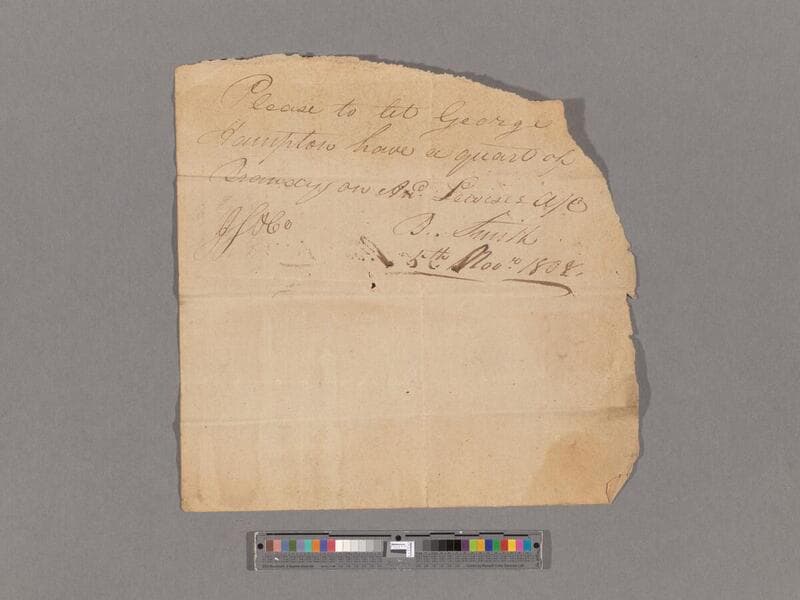 Please to let George
Hampton have a quart of
Brandy on And. Lewises A/C
B. Smith
5th Novr. 1808.